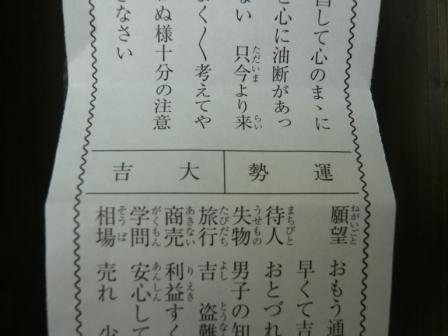 昌して心のまゝに
と心に油断があっ
ない 只今より来
く〳〵考えてや
ぬ様十分の注意
なさい
運勢
大吉
願望 おもう通
早くて吉
待人 おとづれ
失物 男子の知
旅行 吉 盗難
商売 利益すく
学問 安心して
相場 売れ